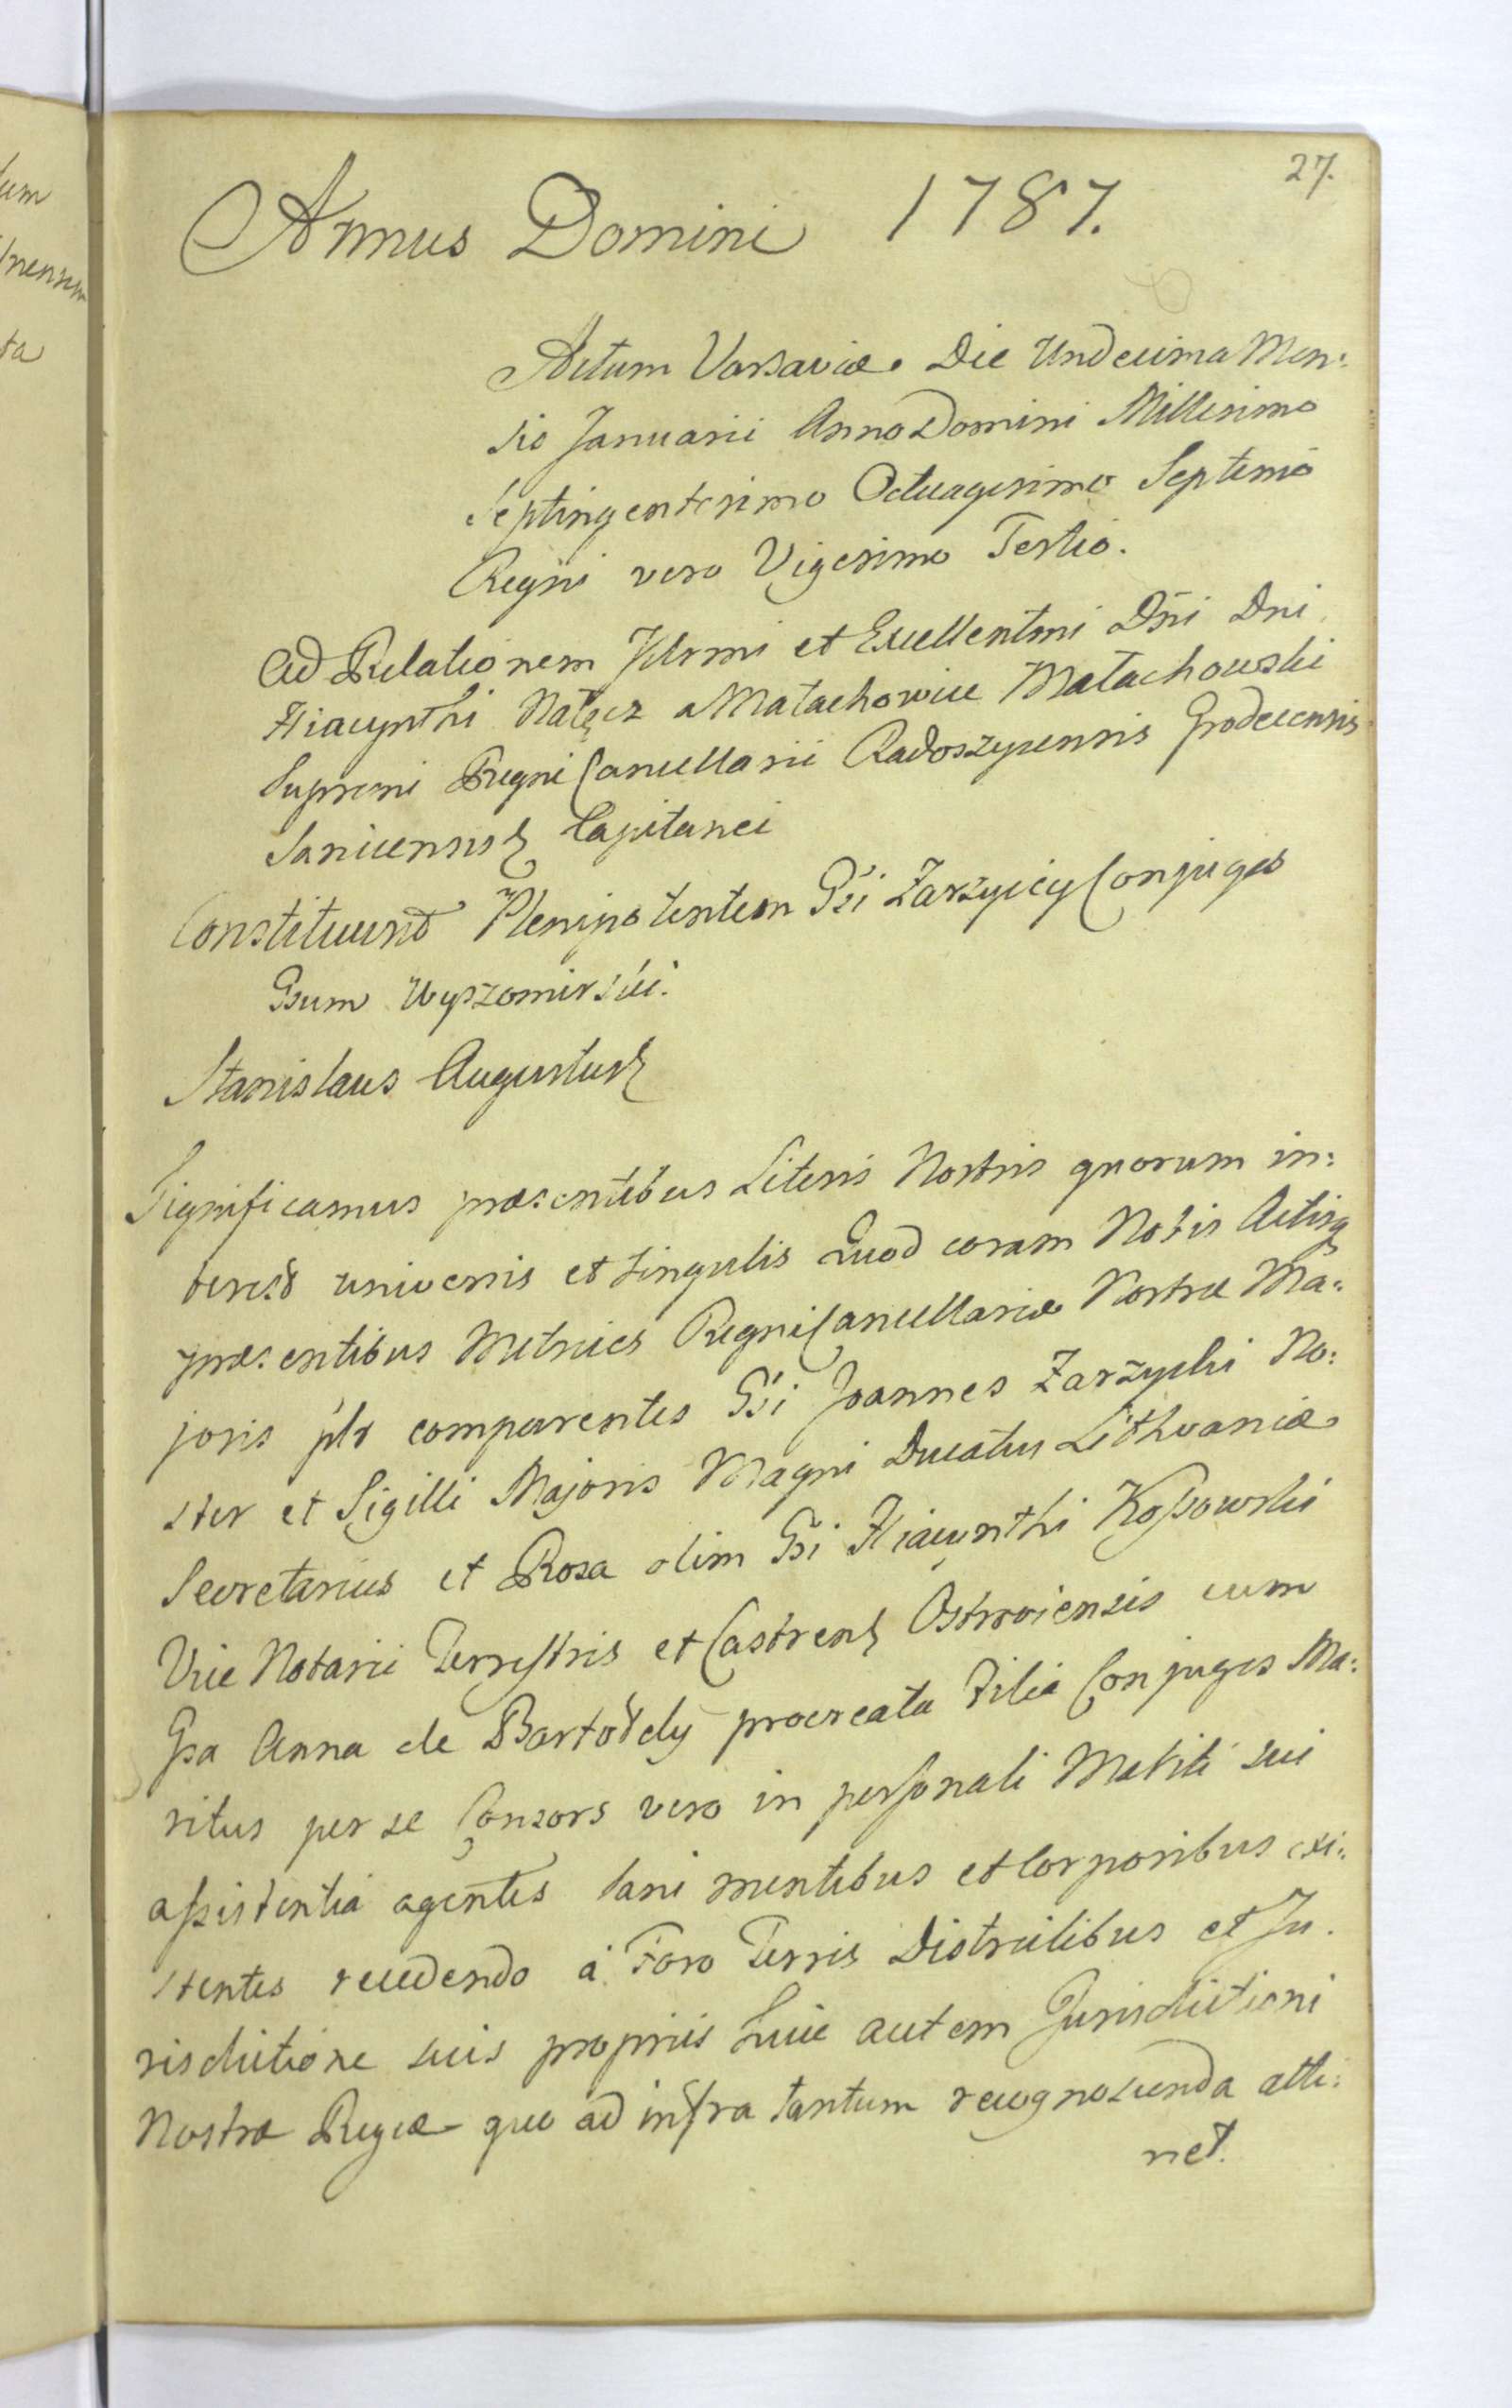 27.
Annus Domini 1787.
Actum Varsaviæ Die Undecima Men:
sis Januarii Anno Domini Millesimo
Septingentesimo Octuagesimo Septimo
Regni vero Vigesimo Tertio.
Ad Relationem Illrmi et Excellentmi Dñi Dni
Hiacynthi Nałęcz a Małachowice Małachowski
Supremi Regni Cancellarii Radoszycensis Grodecensis
Sanicensisq Capitanei
Constituunt Plenipotentem Gsi Zarzyccy Conjuges
Gsum Wyszomirski.
Stanislaus Augustus
Significamus præsentibus Literis Nostris quorum in:
terest universis et singulis Quod coram Nobis Actisq
præsentibus Metrices Regni Cancellariæ Nostræ Ma:
joris plr comparentes Gsi Joannes Zarzycki No:
ster et Sigilli Majoris Magni Ducatus Lithvaniæ
Secretarius et Rosa olim Gsi Hiacynthi Kossowski
Vice Notarii Terrestris et Castrens Ostroviensis cum
Gsa Anna de procreata Filia Conjuges Ma:
ritus per se Consors vero in personali Mariti sui
assistentia agentes sani mentibus et Corporibus exi:
stentes recedendo à Foro Terris Districtibus et Ju.
risdictione suis propriis Huic autem Jurisdictioni
Nostræ Regiæ quo ad infra tantum recognoscenda atti:
net.
um
nensem
ta